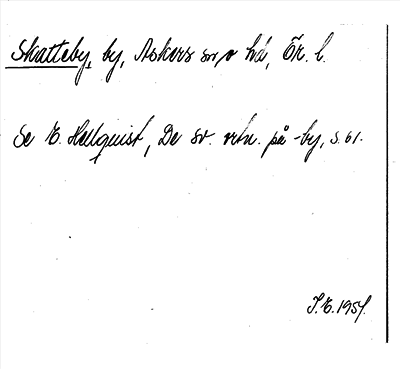 Skatteby, by, Askers sn o hd, Ör. l.
Se E. Hellquist, De sv. ortn. på -by, s. 61.
J.E. 195